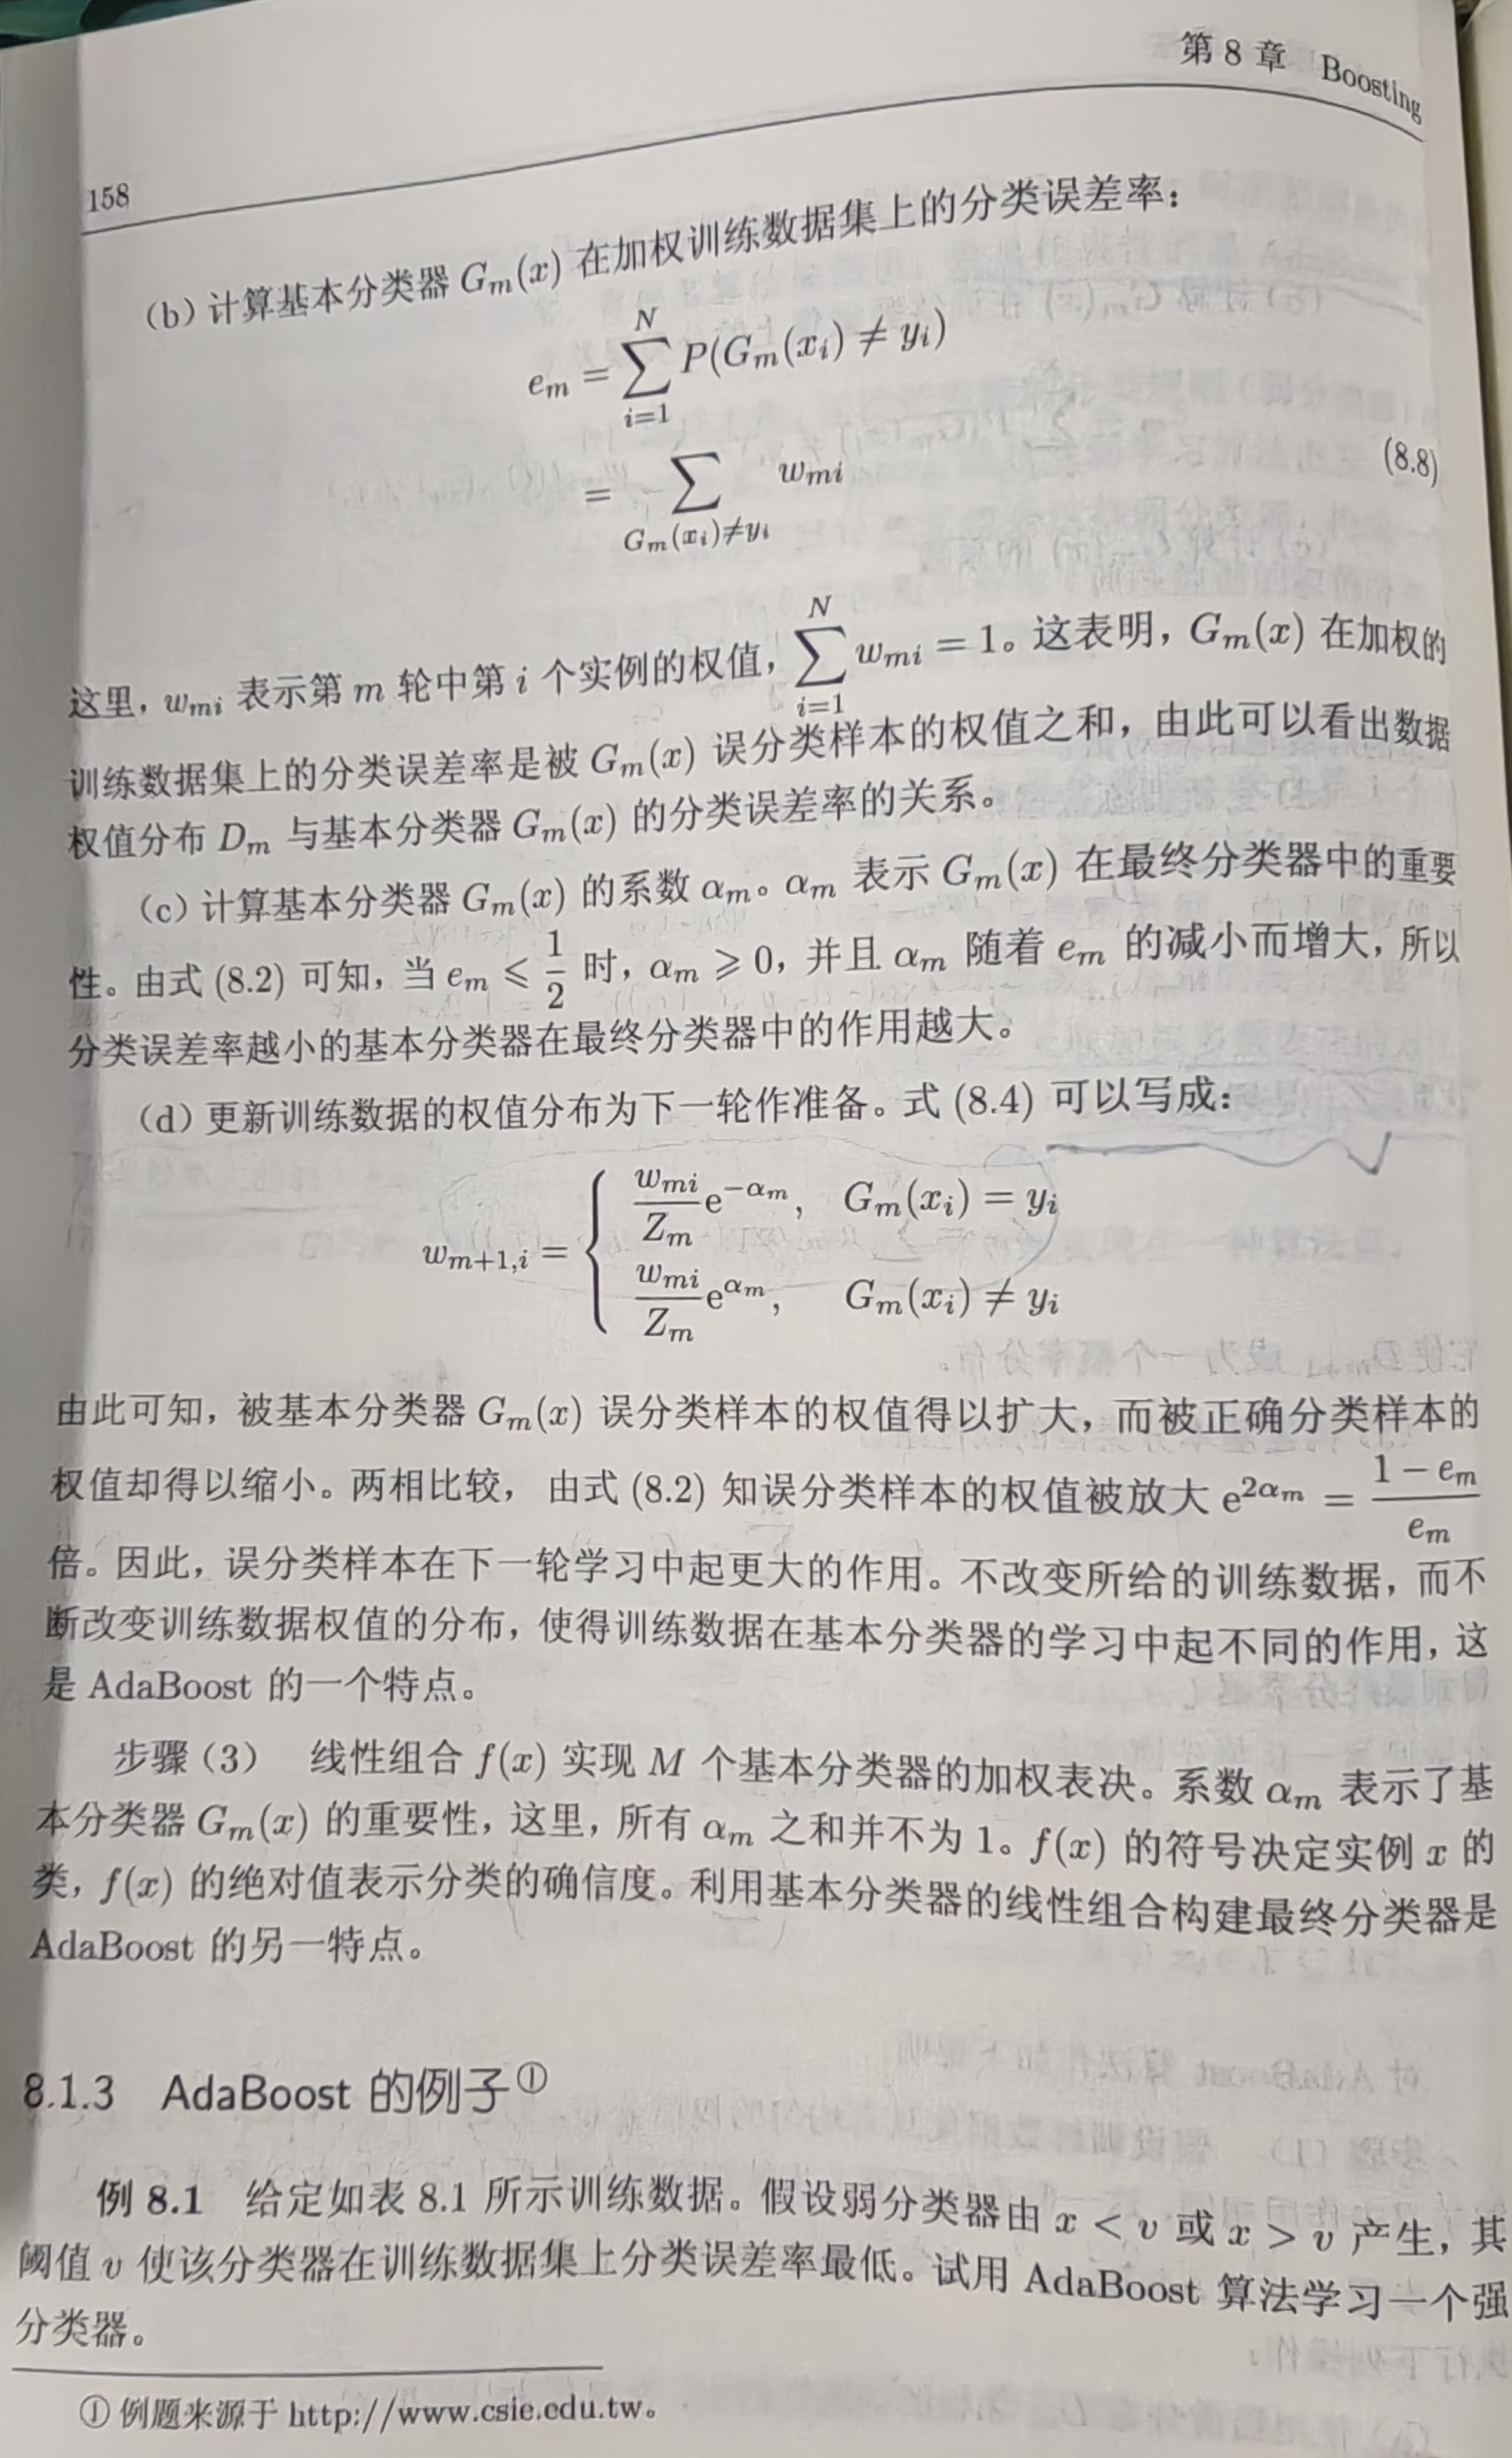 第 8 章 Boosting
158
(b) 计算基本分类器 $G_m(x)$ 在加权训练数据集上的分类误差率：
$e_m = \sum_{i=1}^{N} P(G_m(x_i) \neq y_i)$
$= \sum_{G_m(x_i) \neq y_i} w_{mi}$ (8.8)
这里，$w_{mi}$ 表示第 $m$ 轮中第 $i$ 个实例的权值，$\sum_{i=1}^{N} w_{mi} = 1$。这表明，$G_m(x)$ 在加权的
训练数据集上的分类误差率是被 $G_m(x)$ 误分类样本的权值之和，由此可以看出数据
权值分布 $D_m$ 与基本分类器 $G_m(x)$ 的分类误差率的关系。
(c) 计算基本分类器 $G_m(x)$ 的系数 $\alpha_m$。$\alpha_m$ 表示 $G_m(x)$ 在最终分类器中的重要
性。由式 (8.2) 可知，当 $e_m \leqslant \frac{1}{2}$ 时，$\alpha_m \geqslant 0$，并且 $\alpha_m$ 随着 $e_m$ 的减小而增大，所以
分类误差率越小的基本分类器在最终分类器中的作用越大。
(d) 更新训练数据的权值分布为下一轮作准备。式 (8.4) 可以写成：
$w_{m+1,i} = \begin{cases} \frac{w_{mi}}{Z_m} \mathrm{e}^{-\alpha_m}, & G_m(x_i) = y_i \\ \frac{w_{mi}}{Z_m} \mathrm{e}^{\alpha_m}, & G_m(x_i) \neq y_i \end{cases}$
由此可知，被基本分类器 $G_m(x)$ 误分类样本的权值得以扩大，而被正确分类样本的
权值却得以缩小。两相比较，由式 (8.2) 知误分类样本的权值被放大 $\mathrm{e}^{2\alpha_m} = \frac{1-e_m}{e_m}$
倍。因此，误分类样本在下一轮学习中起更大的作用。不改变所给的训练数据，而不
断改变训练数据权值的分布，使得训练数据在基本分类器的学习中起不同的作用，这
是 AdaBoost 的一个特点。
步骤（3） 线性组合 $f(x)$ 实现 $M$ 个基本分类器的加权表决。系数 $\alpha_m$ 表示了基
本分类器 $G_m(x)$ 的重要性，这里，所有 $\alpha_m$ 之和并不为 1。$f(x)$ 的符号决定实例 $x$ 的
类，$f(x)$ 的绝对值表示分类的确信度。利用基本分类器的线性组合构建最终分类器是
AdaBoost 的另一特点。
8.1.3 AdaBoost 的例子①
例 8.1 给定如表 8.1 所示训练数据。假设弱分类器由 $x < v$ 或 $x > v$ 产生，其
阈值 $v$ 使该分类器在训练数据集上分类误差率最低。试用 AdaBoost 算法学习一个强
分类器。
① 例题来源于 http://www.csie.edu.tw。